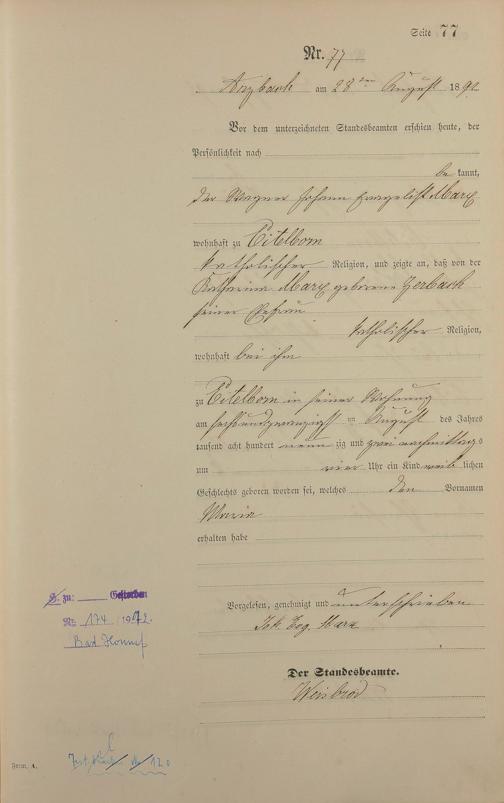 Seite 77
Nr. 77
Arzbach am 28ten August 1892
Vor dem unterzeichneten Standesbeamten erschien heute, der
Persönlichkeit nach
be kannt,
der Wagner Johann Evangelist Marx
wohnhaft zu Eitelborn
katholischer Religion, und zeigte an, daß von der
Katharina Marx geborene Zerbach
seiner Ehefrau
katholischer Religion,
wohnhaft bei ihm
zu Eitelborn in seiner Wohnung
am sechsundzwanzigsten August des Jahres
tausend acht hundert neun zig und zwei nachmittags
um vier Uhr ein Kind weib lichen
Geschlechts geboren worden sei, welches den Vornamen
Maria
erhalten habe
Vorgelesen, genehmigt und unterschrieben
Joh. Evg. Marx
Der Standesbeamte.
Weisbrod
zu: Gestorben
Nr. 174 1972.
Bad Honnef
Form. A.